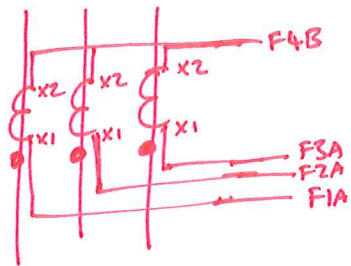 F4B
X2 X2 X2
X1 X1 X1
F3A
F2A
F1A